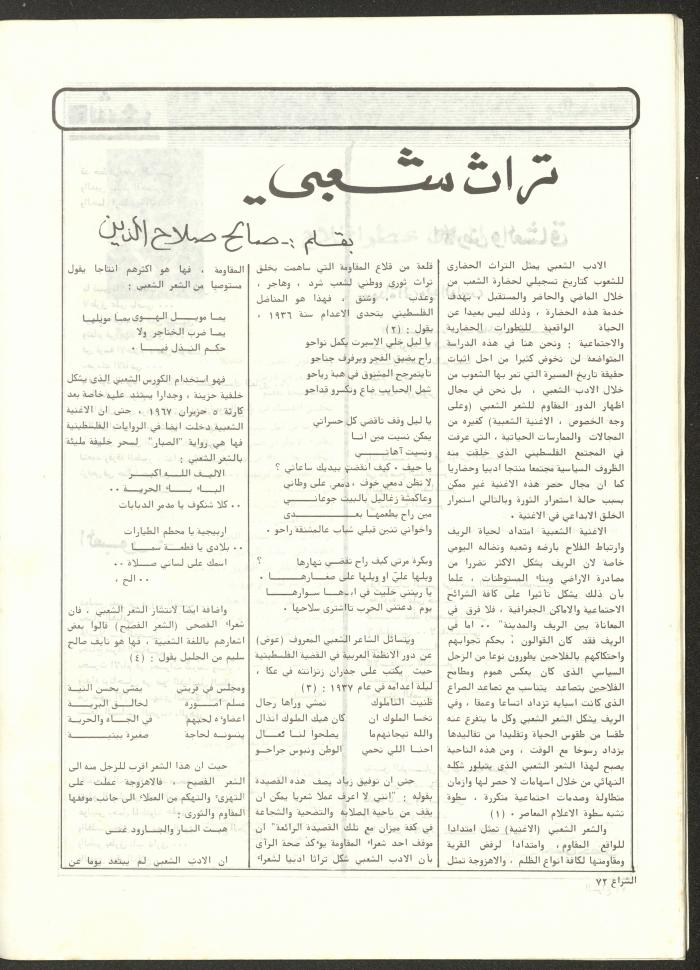 تراث شعبي ..
بقلم :- صالح صلاح الدين
الادب الشعبي يمثل التراث الحضارى
للشعوب كتاريخ تسجيلي لحضارة الشعب من
خلال الماضي والحاضر والمستقبل ، بهدف
خدمة هذه الحضارة ، وذلك ليس بعيدا عن
الحياة الواقعية للتطورات الحضارية
والاجتماعية : ونحن هنا في هذه الدراسة
المتواضعة لن نخوض كثيرا من اجل اثبات
حقيقة تاريخ المسيرة التي تمر بها الشعوب من
خلال الادب الشعبي ، بل نحن في مجال
اظهار الدور المقاوم للشعر الشعبي (وعلى
وجه الخصوص ، الاغنية الشعبية) كغيره من
المجالات والممارسات الحياتية ، التي عرفت
في المجتمع الفلسطيني الذي خلقت منه
الظروف السياسية مجتمعا منتجا ادبيا وحضاريا
كما ان مجال حصر هذه الاغنية غير ممكن
بسبب حالة استمرار الثورة وبالتالي استمرار
الخلق الابداعي في الاغنية .
الاغنية الشعبية امتداد لحياة الريف
وارتباط الفلاح بارضه وشعبه ونضاله اليومي
خاصة لان الريف يشكل الاكثر تضررا من
مصادرة الاراضي وبناء المستوطنات ، علما
بأن ذلك يشكل تأثيرا على كافة الشرائح
الاجتماعية والاماكن الجغرافية ، فلا فرق في
المعاناة بين الريف والمدينة" .. اما في
الريف فقد كان القوالون ؛ بحكم تجوابهم
واحتكاكهم بالفلاحين يطورون نوعا من الزجل
السياسي الذى كان يعكس هموم ومطامح
الفلاحين بتصاعد يتناسب مع تصاعد الصراع
الذى كانت اسبابه تزداد اتساعا وعمقا ، وفي
الريف يشكل الشعر الشعبي وكل ما يتفرع عنه
طقسا من طقوس الحياة وتقليدا من تقاليدها
يزداد رسوخا مع الوقت ، ومن هذه الناحية
يصبح لهذا الشعر الشعبي الذي يتبلور شكله
النهائي من خلال اسهامات لا حصر لها وازمان
متطاولة وصدمات اجتماعية متكررة ، سطوة
تشبه سطوة الاعلام المعاصر . (١)
والشعر الشعبي (الاغنية) تمثل امتدادا
للواقع المقاوم، وامتدادا لرفض القرية
ومقاومتها لكافة انواع الظلم ، والاهزوجة تمثل
قلعة من قلاع المقاومة التي ساهمت بخلق
تراث ثوري ووطني لشعب شرد ، وهاجر ،
وعذب ، وشنق ، فهذا هو المناضل
الفلسطيني يتحدى الاعدام سنة ١٩٣٦ ،
بقول : (٢)
يا ليل خلي الاسير يكمل نواحو
راح يضيق الفجر ويرفرف جناحو
تايتمرجح المشنوق في هبة رياحو
شمل الحبايب ضاع وتكسرو قداحو
يا ليل وقف تاقضي كل حسراتي
يمكن نسيت مين انا
ونسيت آهاتي
يا حيف ، كيف انقضت بيديك ساعاتي ؟
لا تظن دمعي خوف ، دمعي على وطاني
وعاكمشة زغاليل بالبيت جوعاني
مين راح يطعمها بعدي
واخواني تنين قبلي شباب عالمشنقة راحو .
وبكرة مرتي كيف راح تقضي نهارها ؟
ويلها علي او ويلها على صغارها .
يا ريتني خليت في ايدها سوارها
يوم دعتني الحرب تااشترى سلاحها .
ويتسائل الشاعر الشعبي المعروف (عوض)
عن دور الانظمة العربية في القضية الفلسطينية
حيث يكتب على جدران زنزانته في عكا ،
ليلة اعدامه في عام ١٩٣٧ : (٣)
ظنيت النا ملوك تمشي وراها رجال
تخسا الملوك ان كان هيك الملوك انذال
والله تيجانهم ما يصلحوا لنا نعال
احنا اللي نحمي الوطن ونبوس جراحو
حتى ان توفيق زياد يصف هذه القصيدة
بقوله : "انني لا اعرف عملا شعريا يمكن ان
يقف من ناحية الصلابة والتضحية والشجاعة
في كفة ميزان مع تلك القصيدة الرائعة" ان
موقف احد شعراء المقاومة يؤكد صحة الرأى
بأن الادب الشعبي شكل تراثا ادبيا لشعراء
المقاومة ، فها هو اكثرهم انتاجا يقول
مستوصيا من الشعر الشعبي :
يما مويل الهوى يما مويليا
يما ضرب الخناجر ولا
حكم النذل فيا .
فهو استخدام الكورس الشعبي الذي يشكل
خلفية حزينة ، وجدارا يستند عليه خاصة بعد
كارثة ٥ حزيران ١٩٦٧ ، حتى ان الاغنية
الشعبية دخلت ايضا في الروايات الفلسطينية
فها هي رواية "الصبار" لسحر خليفة مليئة
بالشعر الشعبي :
الاليف الله اكبر
الباء باء الحرية ..
.. كلا شنكوف يا مدمر الدبابات
اربيجية يا محطم الطيارات
.. بلادى يا قطعة سما
اسمك على لساني صلاة ..
.. الخ .
واضافة ايضا لانتشار الشعر الشعبي ، فان
شعراء الفصحى (الشعر الفصيح) قالوا بعض
اشعارهم باللغة الشعبية ، فها هو نايف صالح
سليم من الجليل يقول : (٤)
ومجلس في قريتي يمشي بحسن النية
مسلم اموره لخالق البرية
اعضاوءه لحيهم في الجاه والحرية
ينسونه لحاجة صغيرة بيتية
حيث ان هذا الشعر اقرب للزجل منه الى
الشعر الفصيح ، فالاهزوجة عملت على
التهزىء والتهكم من العملاء الى جانب موقفها
المقاوم والثورى :
هبت النار والبارود غنى
ان الادب الشعبي لم يبتعد يوما عن
الشراع ٧٢